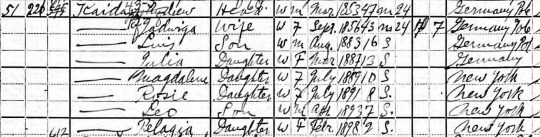 51 226 Andrew Head W M Mar 1853 47 M 24 Germany Pol
— Hedwiga Wife W F Sept. 1856 43 M 24 7 Germany Pol
— Son W M Aug. 1883 16 S. Germany
— Julia Daughter W F Mar. 1887 13 S. Germany
— Magdalene Daughter W F July 1889 10 S. New York
— Rosie Daughter W F July 1891 8 S. New York
— Leo Son W M Apr. 1893 7 S. New York
— Pelagia Daughter W F Febr. 1898 2 S. New York